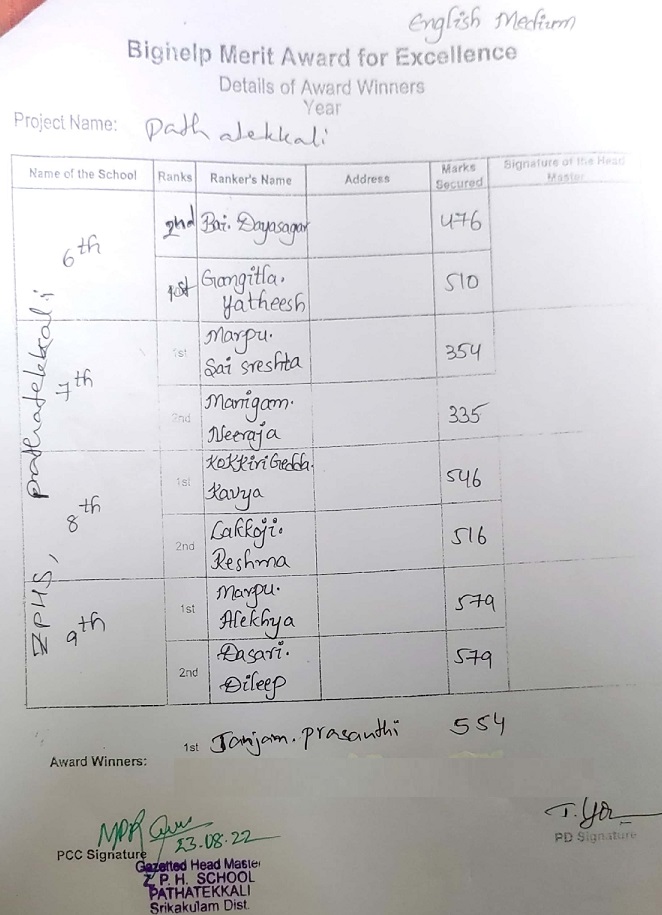 English Medium
Bighelp Merit Award for Excellence
Details of Award Winners
Year
Project Name: Pathatekkali
Name of the School Ranks Ranker's Name Address Marks Secured Signature of the Head Master
ZPHS, pathatekkali
6th
2nd Bai. Dayasagar 476
1st Gangitla. Yatheesh 510
7th
1st Marpu. Sai Sreshta 354
2nd Manigam. Neeraja 335
8th
1st KokkiriGedda. Kavya 546
2nd Lakkoji. Reshma 516
9th
1st Marpu. Alekhya 579
2nd Dasari. Dileep 579
1st Janjam. Prasanthi 554
Award Winners:
23.08.22
PCC Signature
PD Signature
Gazetted Head Master
Z P. H. SCHOOL
PATHATEKKALI
Srikakulam Dist.